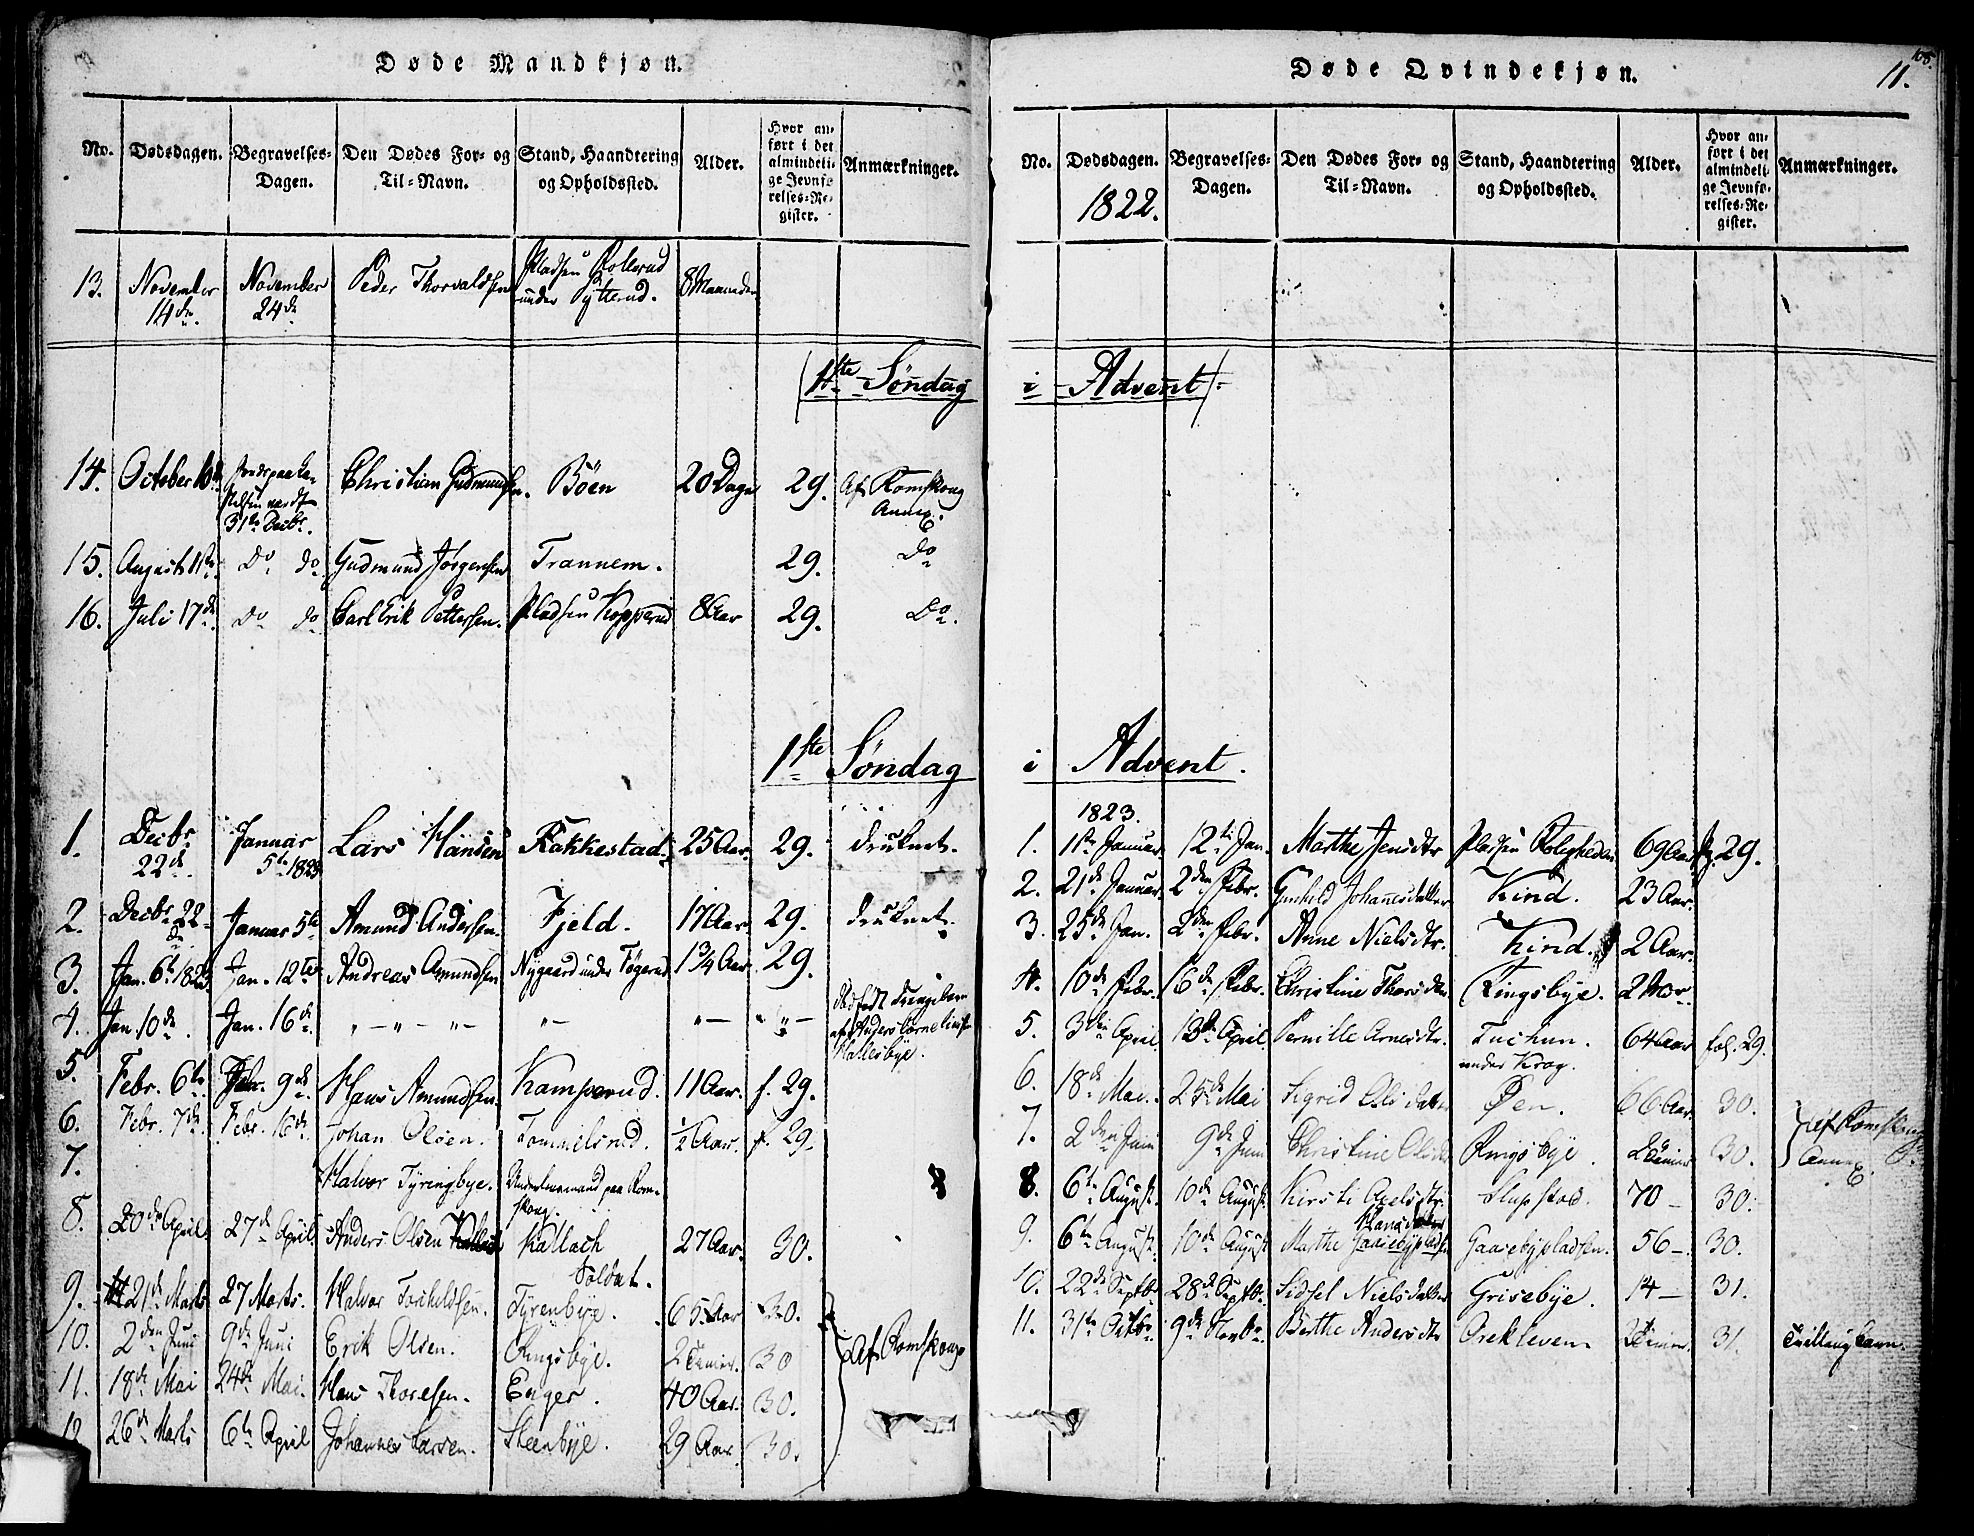 Døde Mandkjøn.
No. Dødsdagen. Begravelses-Dagen. Den Dødes For- og Til-Navn. Stand, Haandtering og Opholdssted. Alder. Hvor anført i det almindelige Jevnførelses-Register. Anmærkninger.
13. November 14de November 24de Peder Thorvaldsen Pladsen Rollerud under Pytterud. 8 Maaneder
1ste Søndag i Advent
14. October 10de 31te Decbr. Christian Gudmundsen. Böen 20 Dage 29. Af Romskong Annex.
15. August 11te Do do Gudmund Jörgensen Trannem. 29. Do
16. Juli 17de Do do Carl Erik Pettersen. Pladsen Kopperud 8 Aar 29. Do.
1ste Søndag i Advent.
1. Decbr. 22de Januar 5te 1823 Lars Hansen Rakkestad. 25 Aar. 29. druknet.
2. Decbr. 22de Januar 5te Amund Andersen. Fjeld. 17 Aar. 29. druknet.
3. Jan. 6te 1823 Jan. 12te Andreas Amundsen Nygaard under Tögerud 1¾ Aar. 29.
4. Jan. 10de. Jan. 16de. " — " — " — " — " — " " — dødfødt Drengebarn af Anders Hallesbye.
5. Febr. 6te Febr. 9de Hans Amundsen. Kamperud. 11 Aar. f. 29.
6. Febr. 7de Febr. 16de Johan Olsen. Tommelsrud. ½ Aar. f. 29.
7. Halvor Tyringbye. paa Romskong.
8. 20de April 27de April. Anders Olsen Kallach Soldat. 27 Aar. 30.
9. 21de Marts 27 Marts. Halvor Torkildsen. Tyrenbye. 65 Aar 30.
10. 2den Juni 9de Juni Erik Olsen. Ringsbye. 2 Timer. 30
11. 18de Mai 24de Mai. Hans Thoresen. Enger. 40 Aar. 30. Af Romskong
12. 26de Marts 6te April Johannes Larsen. Steenbye. 29 Aar 30.
Døde Qvindekjøn.
108.
11.
No. Dødsdagen. Begravelses-Dagen. Den Dødes For- og Til-Navn. Stand, Haandtering og Opholdssted. Alder. Hvor anført i det almindelige Jevnførelses-Register. Anmærkninger.
1822.
1823.
1. 1ste Januar 12te Jan. Marthe Jensdtr Pladsen Roligheden 69 Aar 29.
2. 21de Januar. 2den Febr. Gunhild Johannesdatter Kind. 23 Aar.
3. 25de Jan. 2den Febr. Anne Nielsdtr. Kind. 2 Aar.
4. 10de Febr. 16de Febr. Christine Ringsbye. 2 Aar
5. 3die April. 13de April. Pernille Arnesdtr. under Krog. 64 Aar fol. 29.
6. 18de Mai. 25de Mai Sigrid Olsdatter Øen. 66 Aar. 30.
7. 2den Juni 9de Juni Christine Ringsbye. 2 Timer 30. af Romskong Annex.
8. 6te August. 10de August. Kirsti Axelsdtr. Slupstad. 70 — 30.
9. 6te August. 10de August Marthe Hansdatter Gaasebypladsen. 56 — 30.
10. 22de Septbr. 28de Septbr. Sidsel Nielsdatter Grisebye. 14 — 31.
11. 31te Octbr. 9de Novbr. Berthe Andersdtr Örekleven Timer. 31. Tvillingbarn.